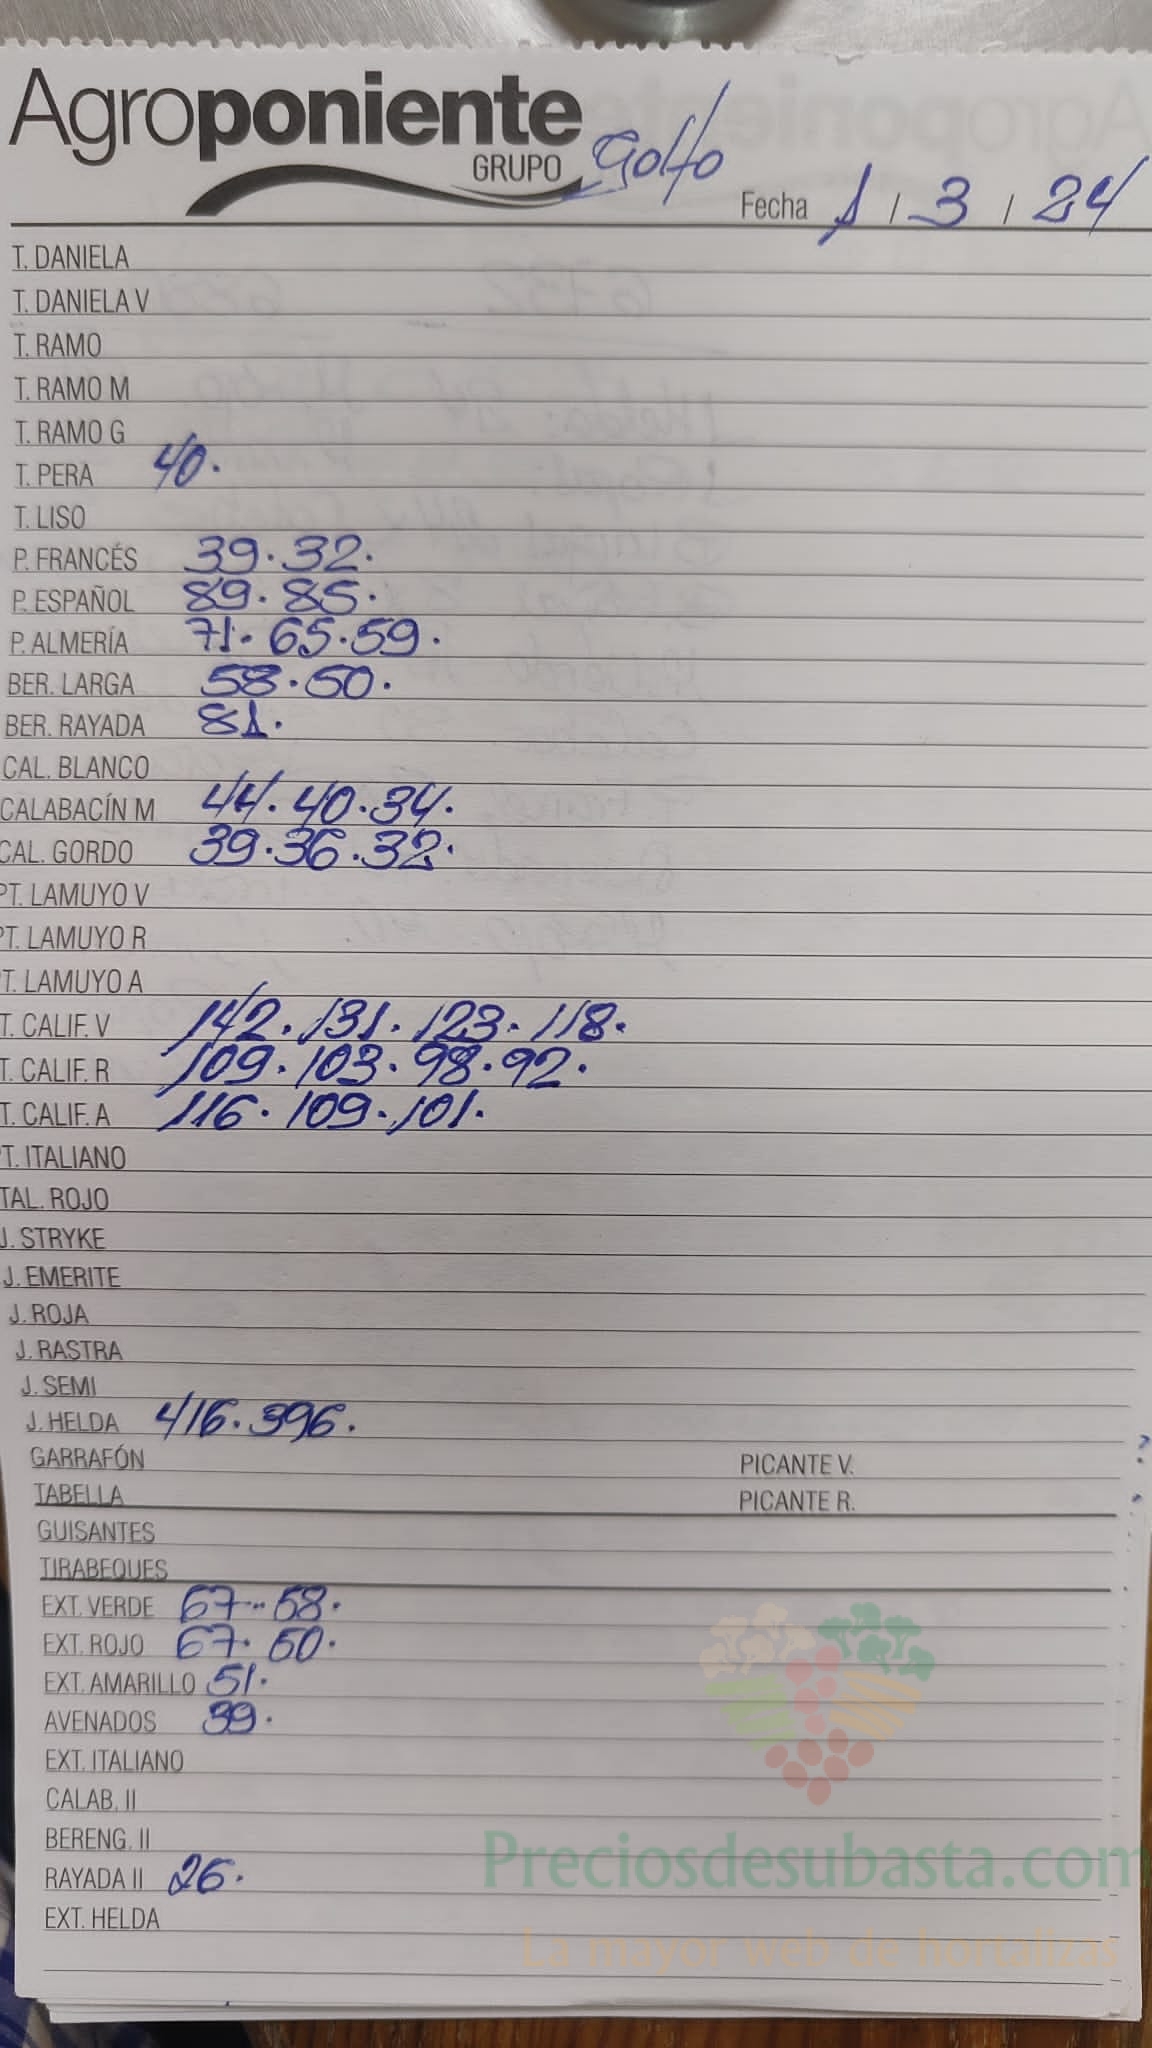 Agroponiente
GRUPO Golfo
Fecha 1 / 3 / 24
T. DANIELA
T. DANIELA V
T. RAMO
T. RAMO M
T. RAMO G
T. PERA 40.
T. LISO
P. FRANCÉS 39. 32.
P. ESPAÑOL 89. 85.
P. ALMERÍA 71. 65. 59.
BER. LARGA 58. 50.
BER. RAYADA 81.
CAL. BLANCO
CALABACÍN M 44. 40. 34.
CAL. GORDO 39. 36. 32.
PT. LAMUYO V
PT. LAMUYO R
T. LAMUYO A
T. CALIF. V 142. 131. 123. 118.
T. CALIF. R 109. 103. 98. 92.
T. CALIF. A 116. 109. 101.
PT. ITALIANO
TAL. ROJO
J. STRYKE
J. EMERITE
J. ROJA
J. RASTRA
J. SEMI
J. HELDA 416. 396.
GARRAFÓN PICANTE V.
TABELLA PICANTE R.
GUISANTES
TIRABEQUES
EXT. VERDE 67. 58.
EXT. ROJO 67. 50.
EXT. AMARILLO 51.
AVENADOS 39.
EXT. ITALIANO
CALAB. II
BERENG. II
Preciosdesubasta.com
RAYADA II 26.
EXT. HELDA
La mayor web de hortalizas